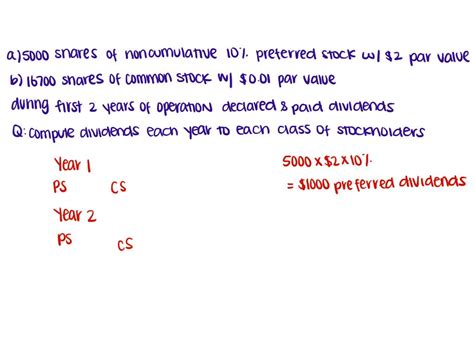 a) 5000 shares of noncumulative 10% preferred stock w/ $2 par value
b) 16700 shares of common stock w/ $0.01 par value
during first 2 years of operation declared & paid dividends
Q: compute dividends each year to each class of stockholders
Year 1
PS CS
5000 x $2 x 10%
= $1000 preferred dividends
Year 2
PS CS